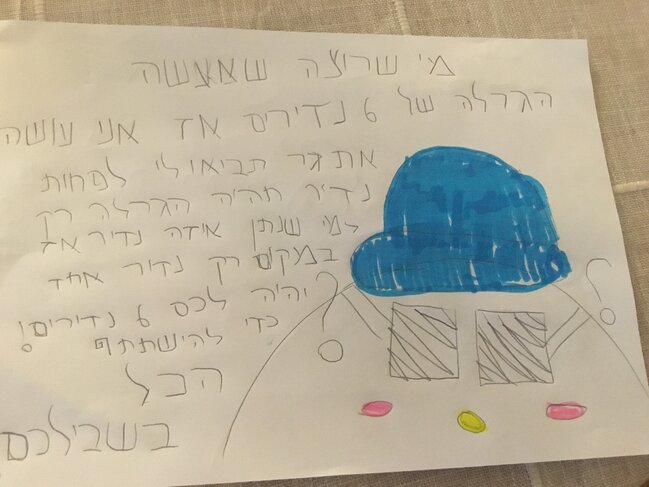 מי שרוצה שאעשה
הגרלה של 6 נדירים אז אני עושה
אתגר תביאו לי לפחות
נדיר תהיה הגרלה רק
למי שנתן איזה נדיר אז
במקום רק נדיר אחד
יהיה לכם 6 נדירים!
כדי להישתתף!
הכל
בשבילכם!